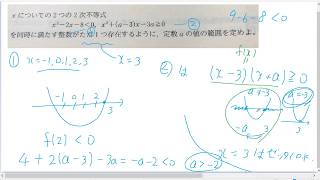 xについての2つの2次不等式
x²-2x-8<0, x²+(a-3)x-3a≧0 ②
を同時に満たす整数がただ1つ存在するように、定数aの値の範囲を定めよ。
9-6-8<0
① x=-1,0,1,2,3
x=3
f(x)
② は (x-3)(x+a)≧0
-1 0 1 2 3
a≠-3
-a 3
3
f(2)<0
4+2(a-3)-3a=-a-2<0
a>-2
x=3は